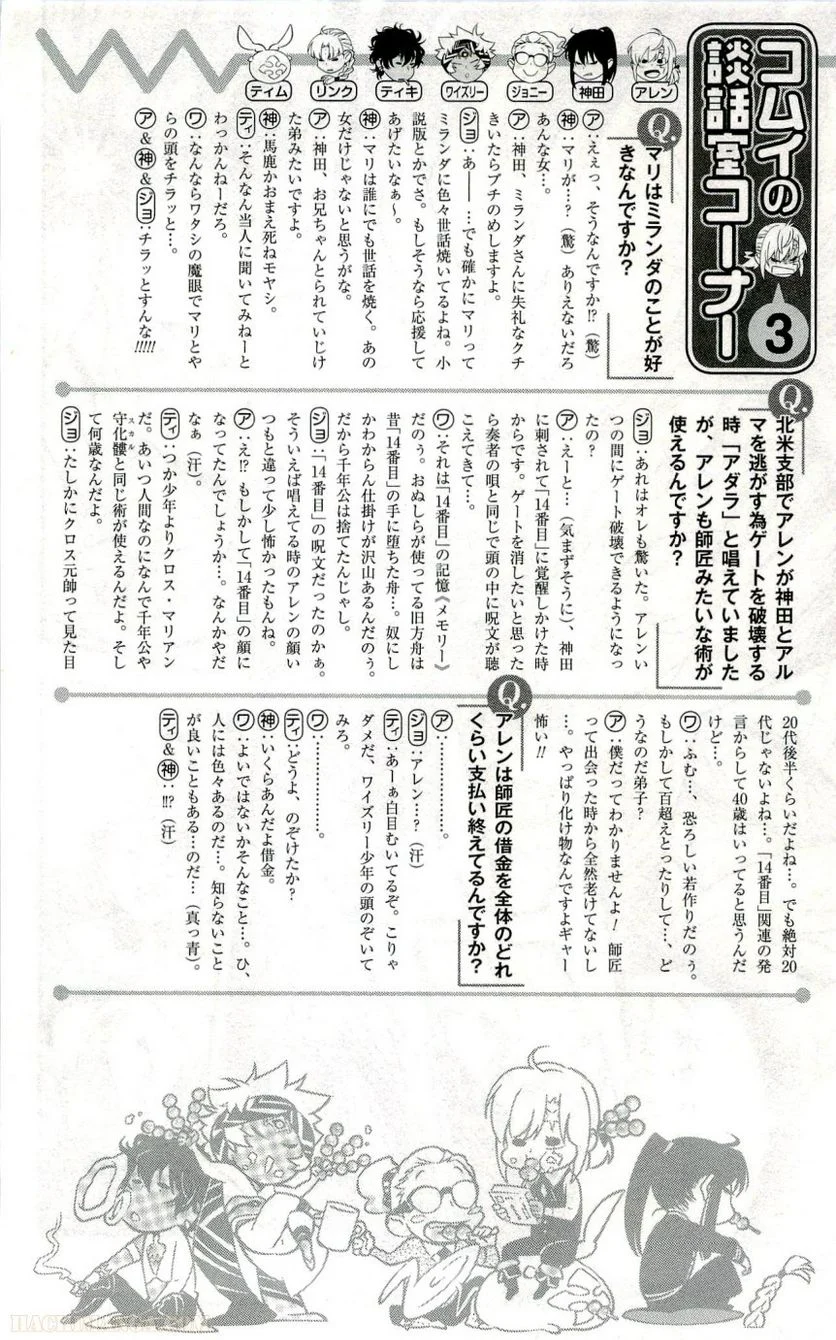 コムイの
談話室コーナー
3
アレン
神田
ジョニー
ワイズリー
ティキ
リンク
ティム
Q.
マリはミランダのことが好
きなんですか?
ア:えぇっ、そうなんですか!?(驚)
神:マリが…?(驚)ありえないだろ
あんな女…。
ア:神田、ミランダさんに失礼なクチ
きいたらブチのめしますよ。
ジョ:あ――…でも確かにマリって
ミランダに色々世話焼いてるよね。小
説版とかでさ。もしそうなら応援して
あげたいなぁ〜。
神:マリは誰にでも世話を焼く。あの
女だけじゃないと思うがな。
ア:神田、お兄ちゃんとられていじけ
た弟みたいですよ。
神:馬鹿かおまえ死ねモヤシ。
ティ:そんなん当人に聞いてみねーと
わっかんねーだろ。
ワ:なんならワタシの魔眼でマリとや
らの頭をチラッと…。
ア&神&ジョ:チラッとすんな!!!!!
Q.
北米支部でアレンが神田とアル
マを逃がす為ゲートを破壊する
時「アダラ」と唱えていました
が、アレンも師匠みたいな術が
使えるんですか?
ジョ:あれはオレも驚いた。アレンい
つの間にゲート破壊できるようになっ
たの?
ア:えーと…(気まずそうに)、神田
に刺されて「14番目」に覚醒しかけた時
からです。ゲートを消したいと思った
ら奏者の唄と同じで頭の中に呪文が聴
こえてきて…。
ワ:それは「14番目」の記憶《メモリー》
だのぅ。おぬしらが使ってる旧方舟は
昔「14番目」の手に堕ちた舟…。奴にし
かわからん仕掛けが沢山あるんだのぅ。
だから千年公は捨てたんじゃし。
ジョ:「14番目」の呪文だったのかぁ。
そういえば唱えてる時のアレンの顔い
つもと違って少し怖かったもんね。
ア:え!? もしかして「14番目」の顔に
なってたんでしょうか…。なんかやだ
なぁ(汗)。
ティ:つか少年よりクロス・マリアン
だ。あいつ人間なのになんで千年公や
守化髏と同じ術が使えるんだよ。そし
スカル
て何歳なんだよ。
ジョ:たしかにクロス元帥って見た目
20代後半くらいだよね…。でも絶対20
代じゃないよね…。「14番目」関連の発
言からして40歳はいってると思うんだ
けど…。
ワ:ふむ…、恐ろしい若作りだのぅ。
もしかして百超えとったりして…、ど
うなのだ弟子?
ア:僕だってわかりませんよ! 師匠
って出会った時から全然老けてないし
…。やっぱり化け物なんですよギャー
怖い!!
Q.
アレンは師匠の借金を全体のどれ
くらい支払い終えてるんですか?
ア:………………。
ジョ:アレン…?(汗)
ティ:あーぁ白目むいてるぞ。こりゃ
ダメだ、ワイズリー少年の頭のぞいて
みろ。
ワ:………………。
ティ:どうよ、のぞけたか?
神:いくらあんだよ借金。
ワ:よいではないかそんなこと…。ひ、
人には色々あるのだ…。知らないこと
が良いこともある…のだ…(真っ青)。
ティ&神:!!?(汗)